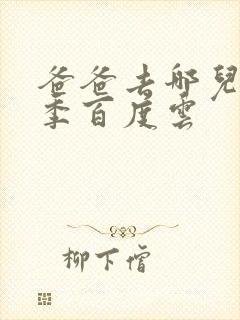 爸爸去哪兒
季百度雲
柳下僧